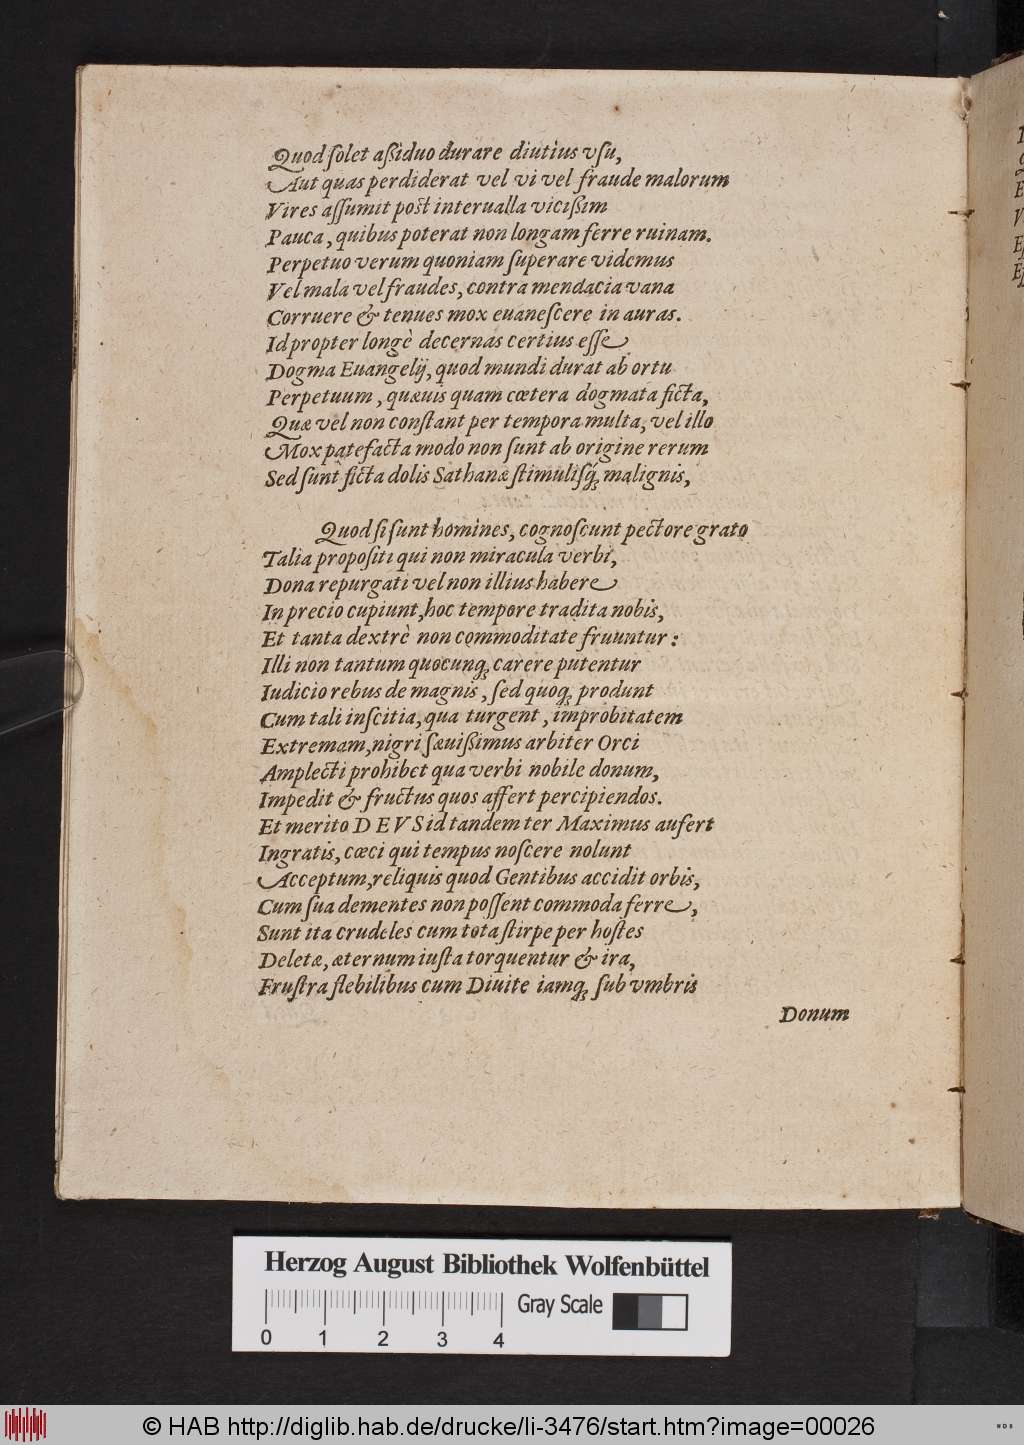 Quod ſolet aßiduo durare diutius vſu,
Aut quas perdiderat vel vi vel fraude malorum
Vires aſſumit poſt interualla vicißim
Pauca, quibus poterat non longam ferre ruinam.
Perpetuo verum quoniam ſuperare videmus
Vel mala vel fraudes, contra mendacia vana
Corruere & tenues mox euaneſcere in auras.
Id propter longè decernas certius eſſe
Dogma Euangelij, quod mundi durat ab ortu
Perpetuum, quæuis quam cœtera dogmata ficta,
Quæ vel non conſtant per tempora multa, vel illo
Mox patefacta modo non ſunt ab origine rerum
Sed ſunt ficta dolis Sathanæ ſtimulisq́; malignis,
Quod ſi ſunt homines, cognoſcunt pectore grato
Talia propoſiti qui non miracula verbi,
Dona repurgati vel non illius habere
In precio cupiunt, hoc tempore tradita nobis,
Et tanta dextrè non commoditate fruuntur:
Illi non tantum quocunq; carere putentur
Iudicio rebus de magnis, ſed quoq; produnt
Cum tali inſcitia, qua turgent, improbitatem
Extremam, nigri ſæuißimus arbiter Orci
Amplecti prohibet qua verbi nobile donum,
Impedit & fructus quos affert percipiendos.
Et merito DEVS id tandem ter Maximus aufert
Ingratis, cœci qui tempus noſcere nolunt
Acceptum, reliquis quod Gentibus accidit orbis,
Cum ſua dementes non poſſent commoda ferre,
Sunt ita crudeles cum tota ſtirpe per hoſtes
Deletæ, æternum iuſta torquentur & ira,
Fruſtra flebilibus cum Diuite iamq; ſub vmbris
Donum
Herzog August Bibliothek Wolfenbüttel
Gray Scale
0 1 2 3 4
© HAB http://diglib.hab.de/drucke/li-3476/start.htm?image=00026